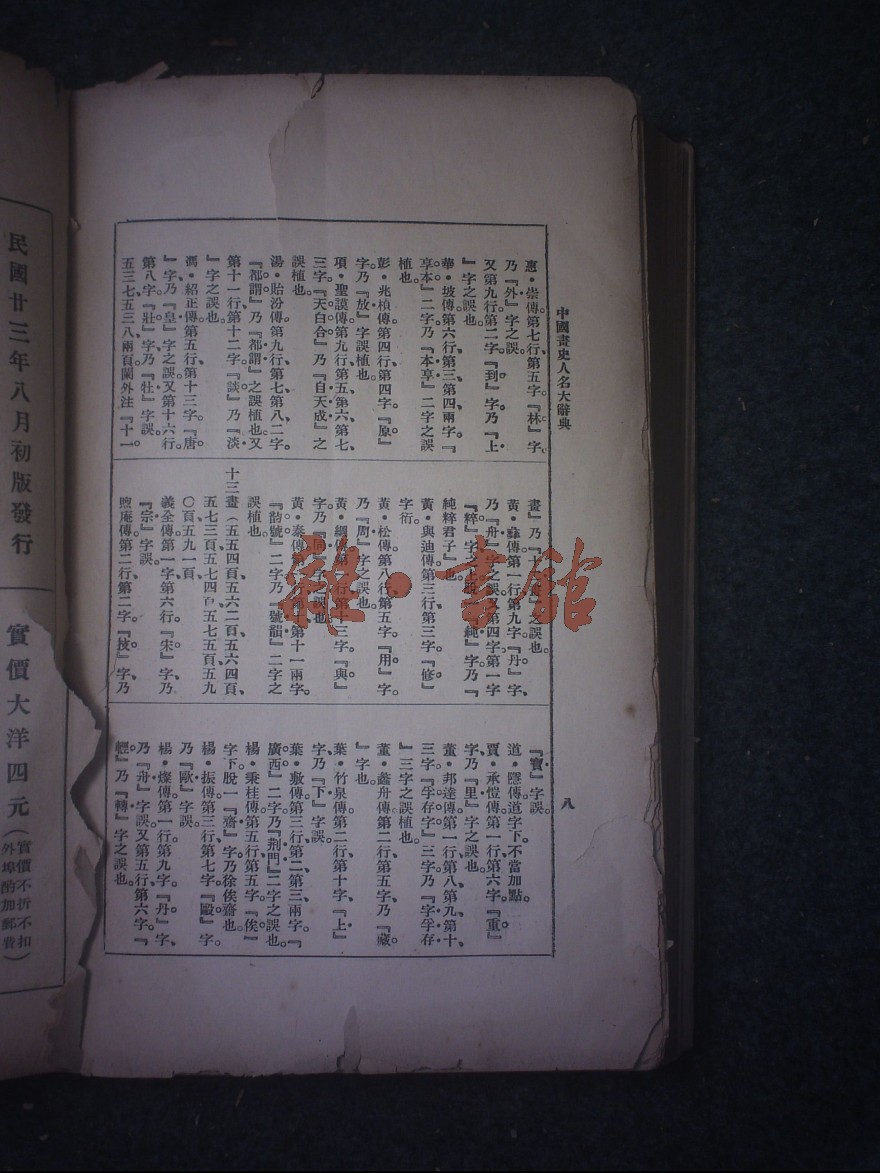 中國畫史人名大辭典
八
惠·崇傳第七行第五字『林』字。
乃『外』字之誤。
又第九行第二字『到』字乃『上
』字之誤也。
華·坡傳第六行第三第四兩字『
享本』二字乃『本享』二字之誤
植也。
彭·兆楨傳第四行第四字『原』
字乃『放』字誤植也。
項·聖謨傳第九行第五第六第七、
三字『天白合』乃『自天成』之
誤植也。
湯·貽汾傳第九行第七第八二字。
『都謂』乃『都謂』之誤植也又
第十一行第十二字。『談』乃『淡
』字之誤也。
馮·紹正傳第五行第十三字。『唐
』字乃『皇』字之誤又第十六行。
第八字『壯』字乃『牡』字誤。
五三七五三八兩頁闌外注『十一
畫』乃『十二畫』之誤也。
黃·彝傳第一行第九字『丹』字、
乃『舟』之誤又第四字第一字
『粹』字之上脫『純』字乃『
純粹君子』也。
黃·與迪傳第三行第三字『修』
字衍。
黃·松傳第八行第五字『用』字。
乃『周』字之誤也。
黃·綱傳第一行第十三字『與』
字乃『同』字之誤也。
黃·泰傳第一行第十第十一兩字。
『韵號』二字乃『號韻』二字之
誤植也。
十三畫（五五四頁五六二頁五六四頁、
五七三頁五七四頁五七五頁五九
〇頁五九一頁
義全傳第一字第六行。『宋』字乃
『宗』字誤
煦庵傳第二行第二字。『技』字乃
『寶』字誤。
道·隱傳道字下不當加點。
賈·承愷傳第一行第六字『重』
字乃『里』字之誤也。
董·邦達傳第一行第八第九第十、
三字『孚存字』三字乃『字孚存
』三字之誤植也。
董·蠡舟傳第二行第五字乃『藏
』字也
葉·竹泉傳第二行第十字、『上』
字乃『下』字誤
葉·敷傳第三行第二第三兩字。『
廣西』二字乃『荆門』二字之誤也。
楊·秉桂傳第五行第五字。『俟』
字下脫一『齋』字乃徐俟齋也。
楊·振傳第三行第七字。『毆』字。
乃『歐』字誤
楊·燦傳第一行第九字。『丹』字、
乃『舟』字誤又第五行第六字。『
輕』乃『轉』字之誤也。
民國廿三年八月初版發行
實價大洋四元
（實價不折不扣
外埠酌加郵費）
雜·書館